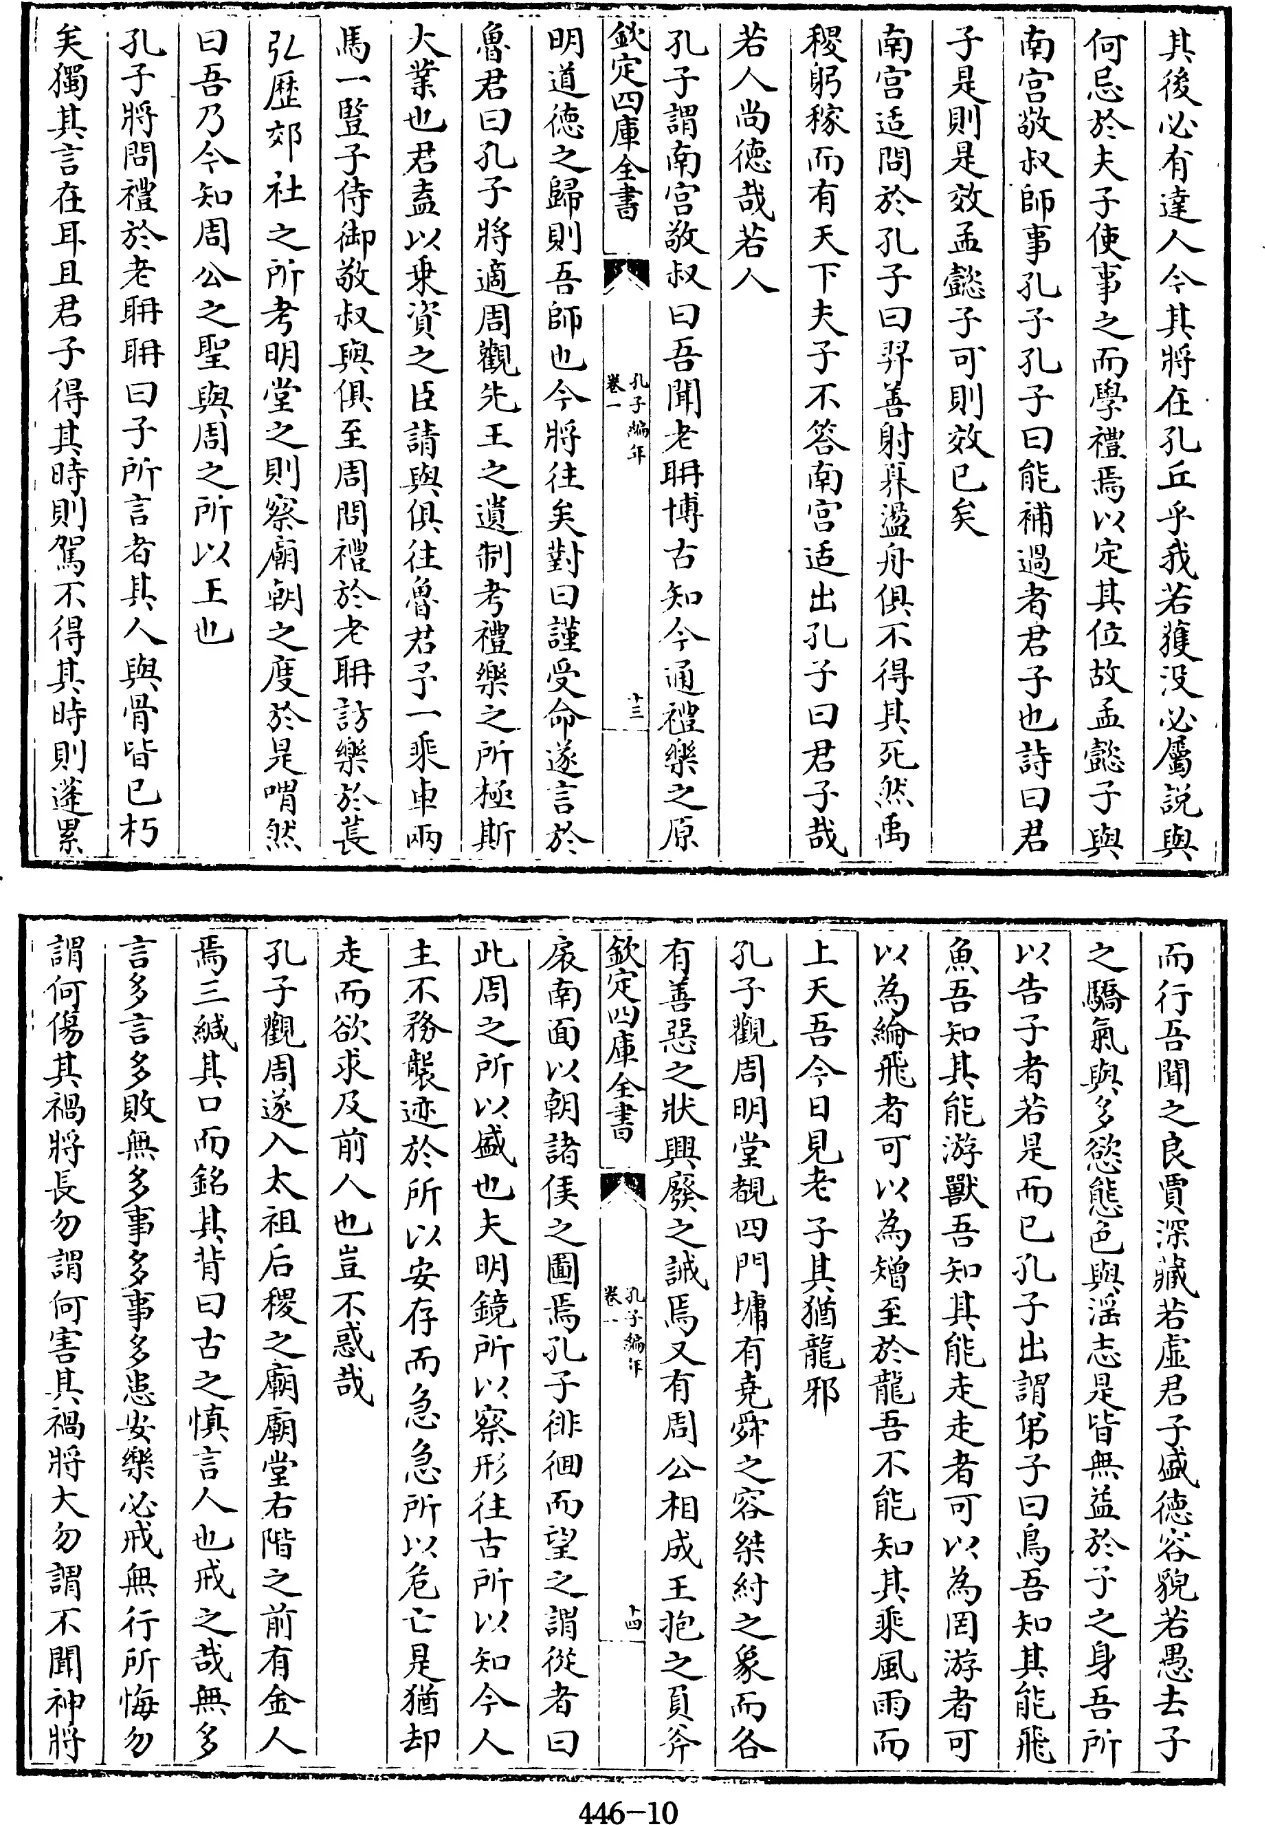 其後必有達人今其將在孔丘乎我若獲没必屬説與
何忌於夫子使事之而學禮焉以定其位故孟懿子與
南宫敬叔師事孔子孔子曰能補過者君子也詩曰君
子是則是效孟懿子可則效已矣
南宫适問於孔子曰羿善射奡盪舟俱不得其死然禹
稷躬稼而有天下夫子不答南宫适出孔子曰君子哉
若人尚德哉若人
孔子謂南宫敬叔曰吾聞老聃博古知今通禮樂之原
欽定四庫全書
孔子編年
卷一
十三
明道德之歸則吾師也今將往矣對曰謹受命遂言於
魯君曰孔子將適周觀先王之遺制考禮樂之所極斯
大業也君盍以乗資之臣請與俱往魯君予一乘車兩
馬一豎子侍御敬叔與俱至周問禮於老聃訪樂於萇
弘歷郊社之所考明堂之則察廟朝之度於是喟然
曰吾乃今知周公之聖與周之所以王也
孔子將問禮於老聃聃曰子所言者其人與骨皆已朽
矣獨其言在耳且君子得其時則駕不得其時則蓬累
而行吾聞之良賈深藏若虚君子盛德容貌若愚去子
之驕氣與多慾態色與淫志是皆無益於子之身吾所
以告子者若是而已孔子出謂弟子曰鳥吾知其能飛
魚吾知其能游獸吾知其能走走者可以為罔游者可
以為綸飛者可以為矰至於龍吾不能知其乘風雨而
上天吾今日見老子其猶龍邪
孔子觀周明堂覩四門墉有堯舜之容桀紂之象而各
有善惡之狀興廢之誡焉又有周公相成王抱之負斧
欽定四庫全書
孔子編年
卷一
十四
扆南面以朝諸侯之圖焉孔子徘徊而望之謂從者曰
此周之所以盛也夫明鏡所以察形往古所以知今人
主不務襲迹於所以安存而急急所以危亡是猶却
走而欲求及前人也豈不惑哉
孔子觀周遂入太祖后稷之廟廟堂右階之前有金人
焉三緘其口而銘其背曰古之慎言人也戒之哉無多
言多言多敗無多事多事多患安樂必戒無行所悔勿
謂何傷其禍將長勿謂何害其禍將大勿謂不聞神將
446-10